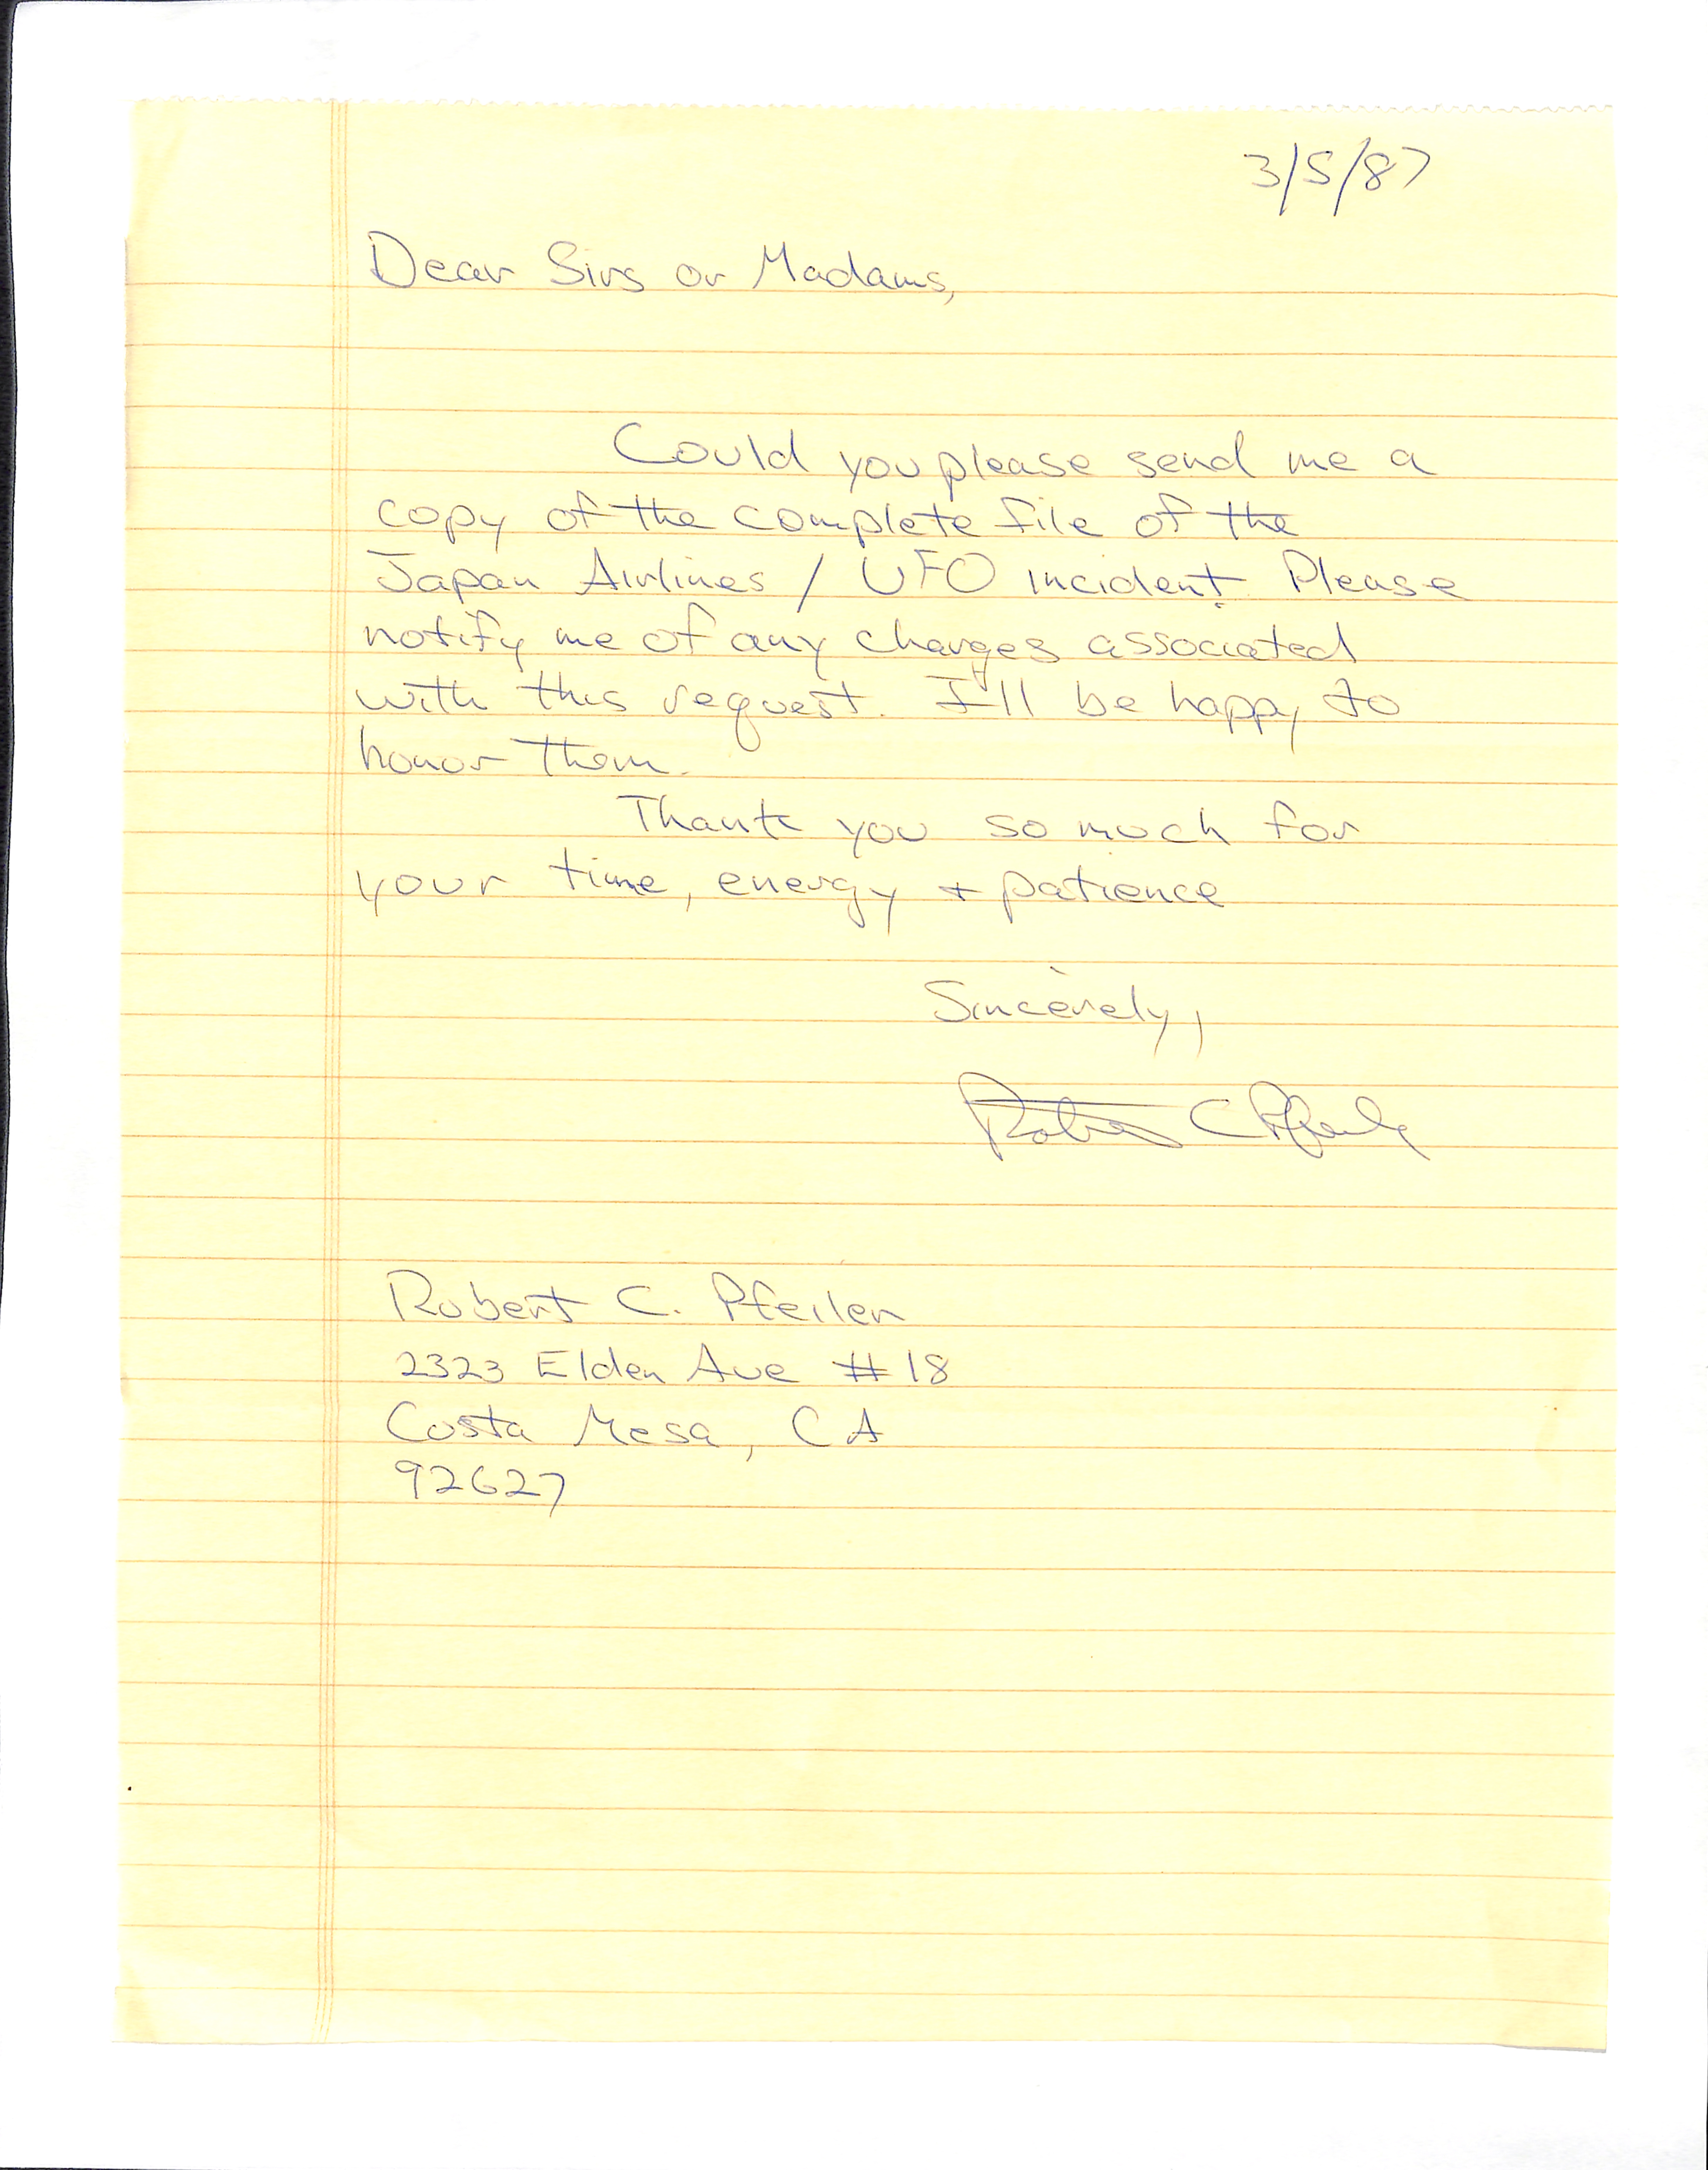 3/5/87
Dear Sirs or Madams,
Could you please send me a
copy of the complete file of the
Japan Airlines / UFO incident. Please
notify me of any charges associated
with this request. I'll be happy to
honor them.
Thank you so much for
your time, energy + patience
Sincerely,
Robert C Pfeiler
Robert C. Pfeiler
2323 Elden Ave #18
Costa Mesa, CA
92627